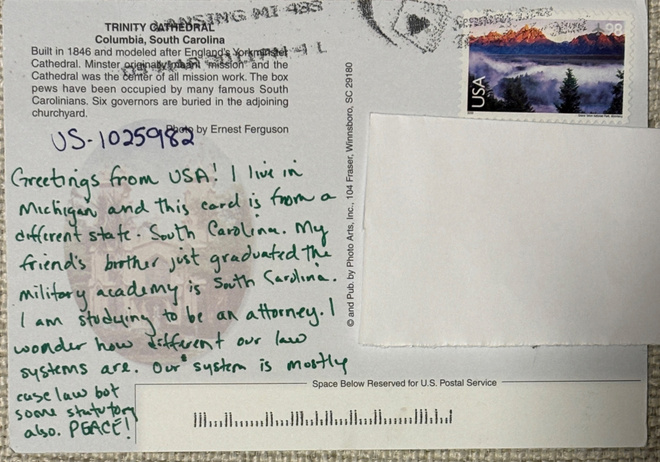 TRINITY CATHEDRAL
Columbia, South Carolina
Built in 1846 and modeled after England's Yorkminster
Cathedral. Minster originally meant "mission" and the
Cathedral was the center of all mission work. The box
pews have been occupied by many famous South
Carolinians. Six governors are buried in the adjoining
churchyard.
Photo by Ernest Ferguson
US-10259982
Greetings from USA! I live in
Michigan and this card is from a
different state - South Carolina. My
friend's brother just graduated the
military academy is South Carolina.
I am studying to be an attorney. I
wonder how different our law
systems are. Our system is mostly
case law bot
some statutory
also. PEACE!
© and Pub. by Photo Arts, Inc., 104 Fraser, Winnsboro, SC 29180
LANSING MI 488
USA
98
Space Below Reserved for U.S. Postal Service